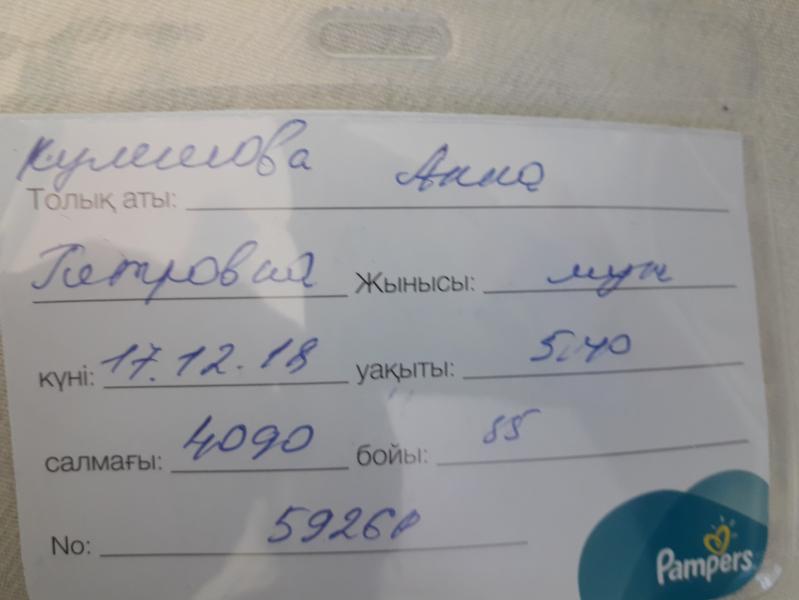 Кулешова Анна
Толық аты:
Петровна Жынысы: муж
күні: 17.12.18 уақыты: 5.40
салмағы: 4090 бойы: 55
No: 5926
Pampers